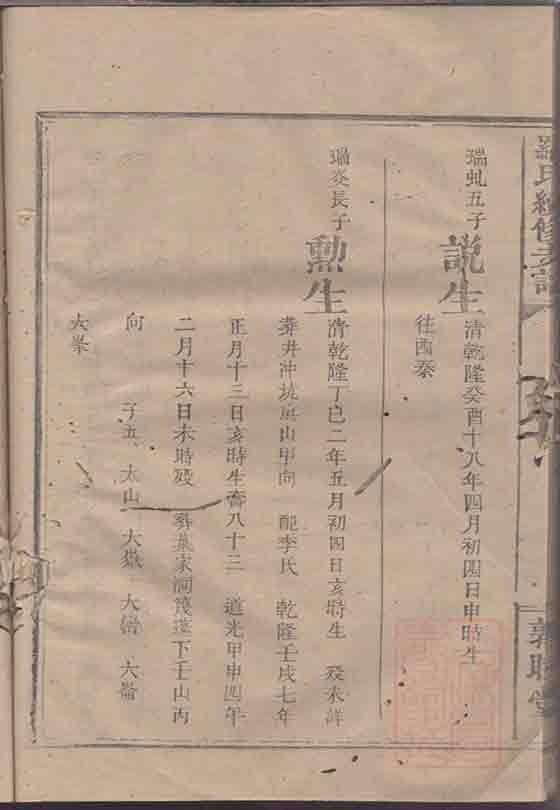 氏續修支譜
敦睦堂
瑞虬五子
說生
清乾隆癸酉十八年四月初四日申時生
往西秦
瑞炎長子
勳生
清乾隆丁巳二年五月初四日亥時生 歿未詳
葬井冲坑山甲向 配李氏 乾隆壬戌七年
正月十三日亥時生壽八十三 道光甲申四年
二月十六日未時歿 葬家洞下壬山丙
向 子五 大山 大 大 大
大峯